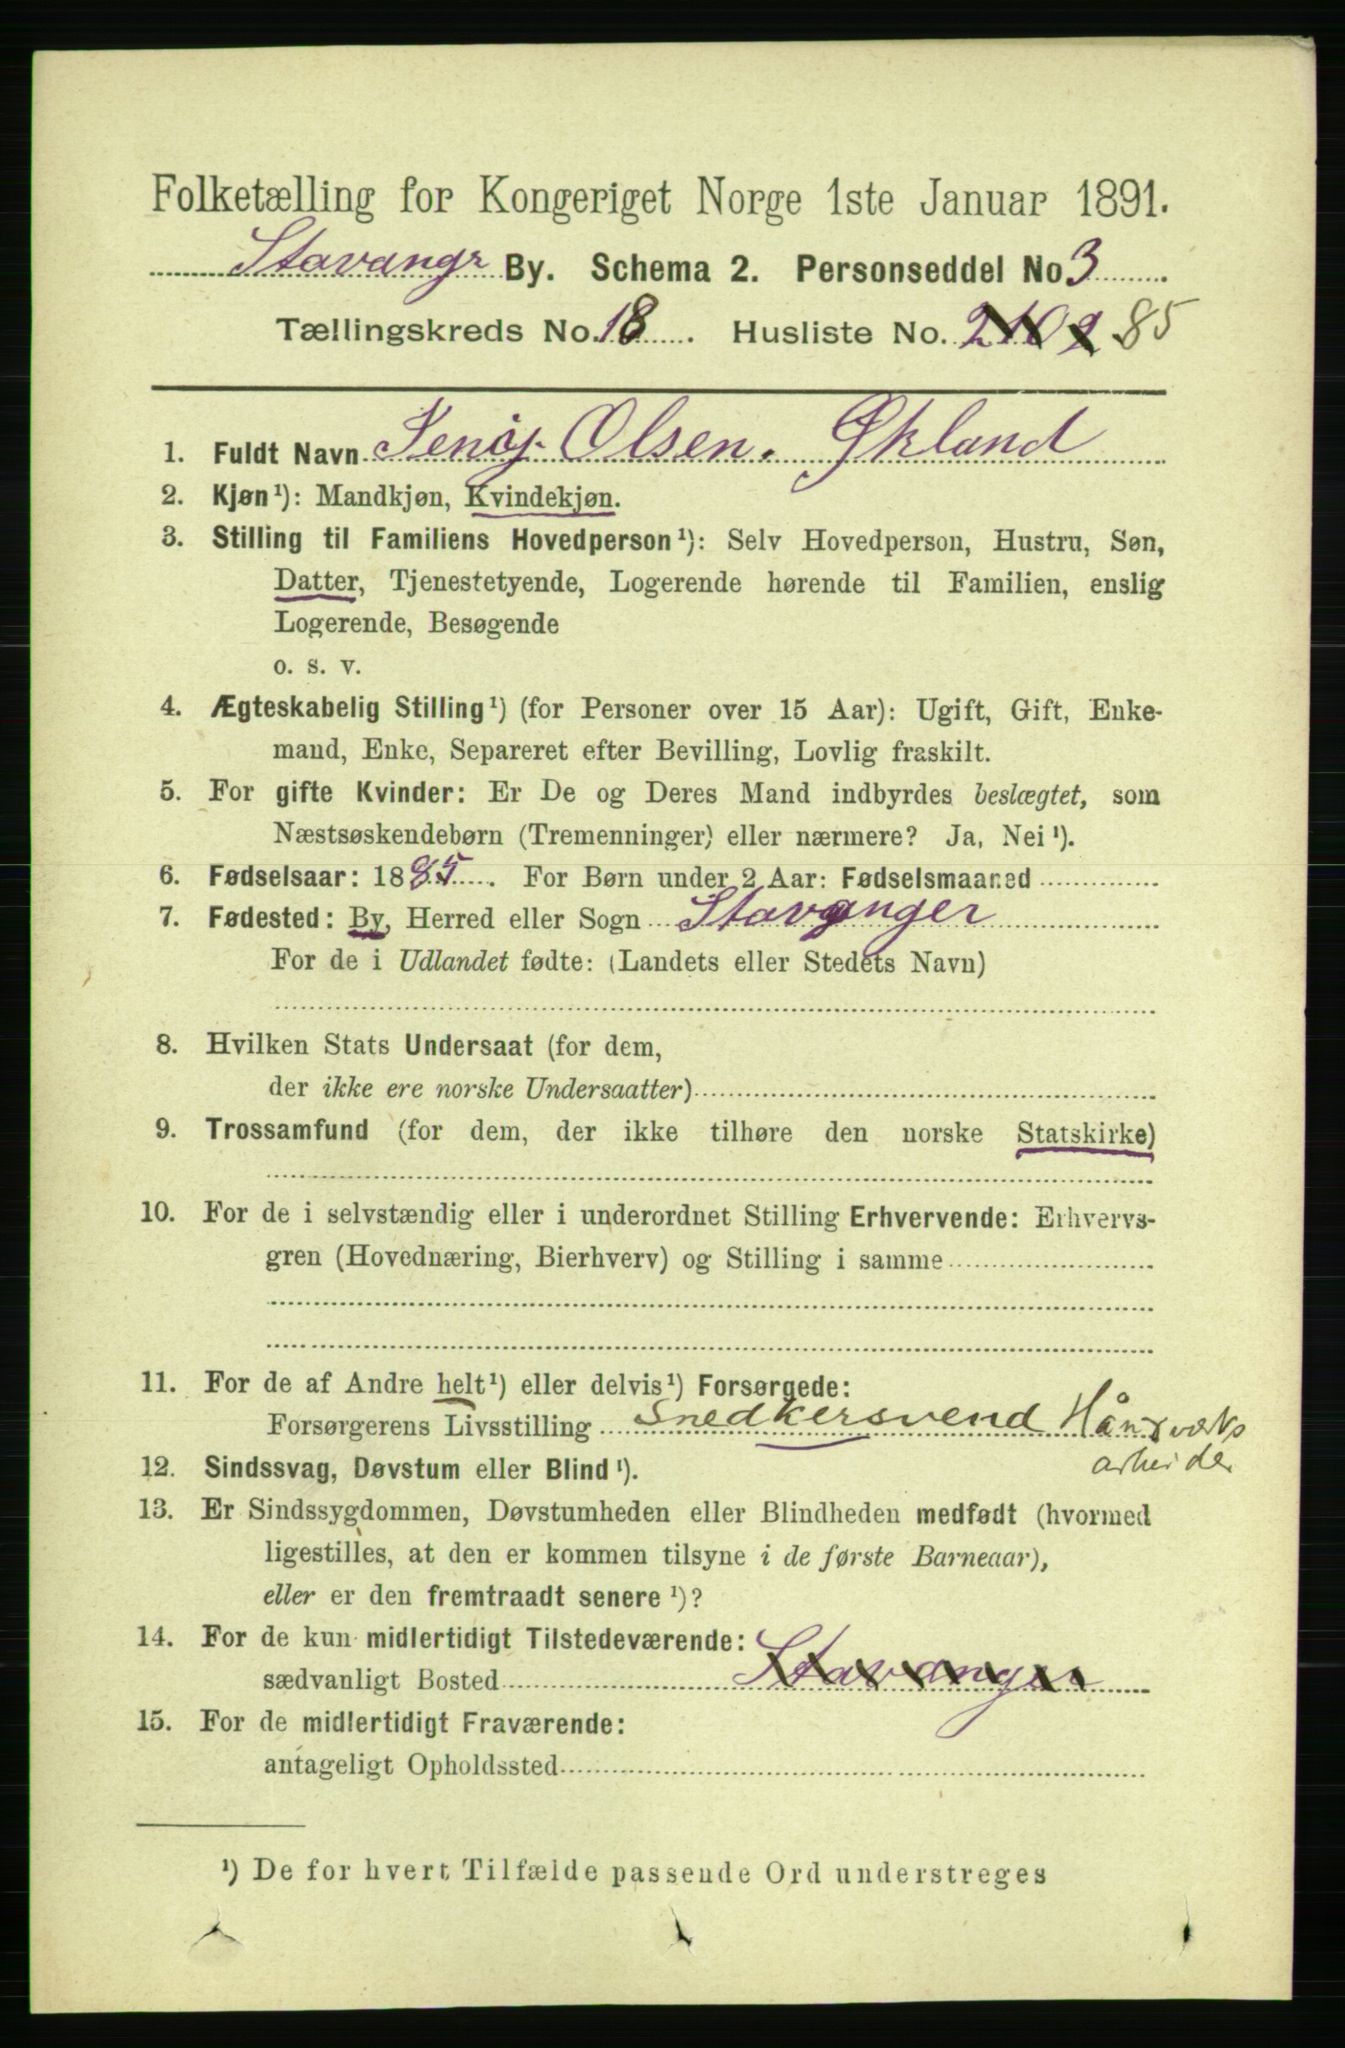 Folketælling for Kongeriget Norge 1ste Januar 1891.
Stavangr By. Schema 2. Personseddel No 3
Tællingskreds No. 18. Husliste No. 85
1. Fuldt Navn Jeniy Olsen. Økland
2. Kjøn¹): Mandkjøn, Kvindekjøn.
3. Stilling til Familiens Hovedperson¹): Selv Hovedperson, Hustru, Søn,
Datter, Tjenestetyende, Logerende hørende til Familien, enslig
Logerende, Besøgende
o. s. v.
4. Ægteskabelig Stilling¹) (for Personer over 15 Aar): Ugift, Gift, Enke-
mand, Enke, Separeret efter Bevilling, Lovlig fraskilt.
5. For gifte Kvinder: Er De og Deres Mand indbyrdes beslægtet, som
Næstsøskendebørn (Tremenninger) eller nærmere? Ja, Nei¹).
6. Fødselsaar: 1885. For Børn under 2 Aar: Fødselsmaaned
7. Fødested: By, Herred eller Sogn Stavanger
For de i Udlandet fødte: (Landets eller Stedets Navn)
8. Hvilken Stats Undersaat (for dem,
der ikke ere norske Undersaatter)
9. Trossamfund (for dem, der ikke tilhøre den norske Statskirke)
10. For de i selvstændig eller i underordnet Stilling Erhvervende: Erhvervs-
gren (Hovednæring, Bierhverv) og Stilling i samme
11. For de af Andre helt¹) eller delvis¹) Forsørgede:
Forsørgerens Livsstilling Snedkersvend Håndværks
arbeider
12. Sindssvag, Døvstum eller Blind¹).
13. Er Sindssygdommen, Døvstumheden eller Blindheden medfødt (hvormed
ligestilles, at den er kommen tilsyne i de første Barneaar),
eller er den fremtraadt senere¹)?
14. For de kun midlertidigt Tilstedeværende:
sædvanligt Bosted Stavanger
15. For de midlertidigt Fraværende:
antageligt Opholdssted
¹) De for hvert Tilfælde passende Ord understreges